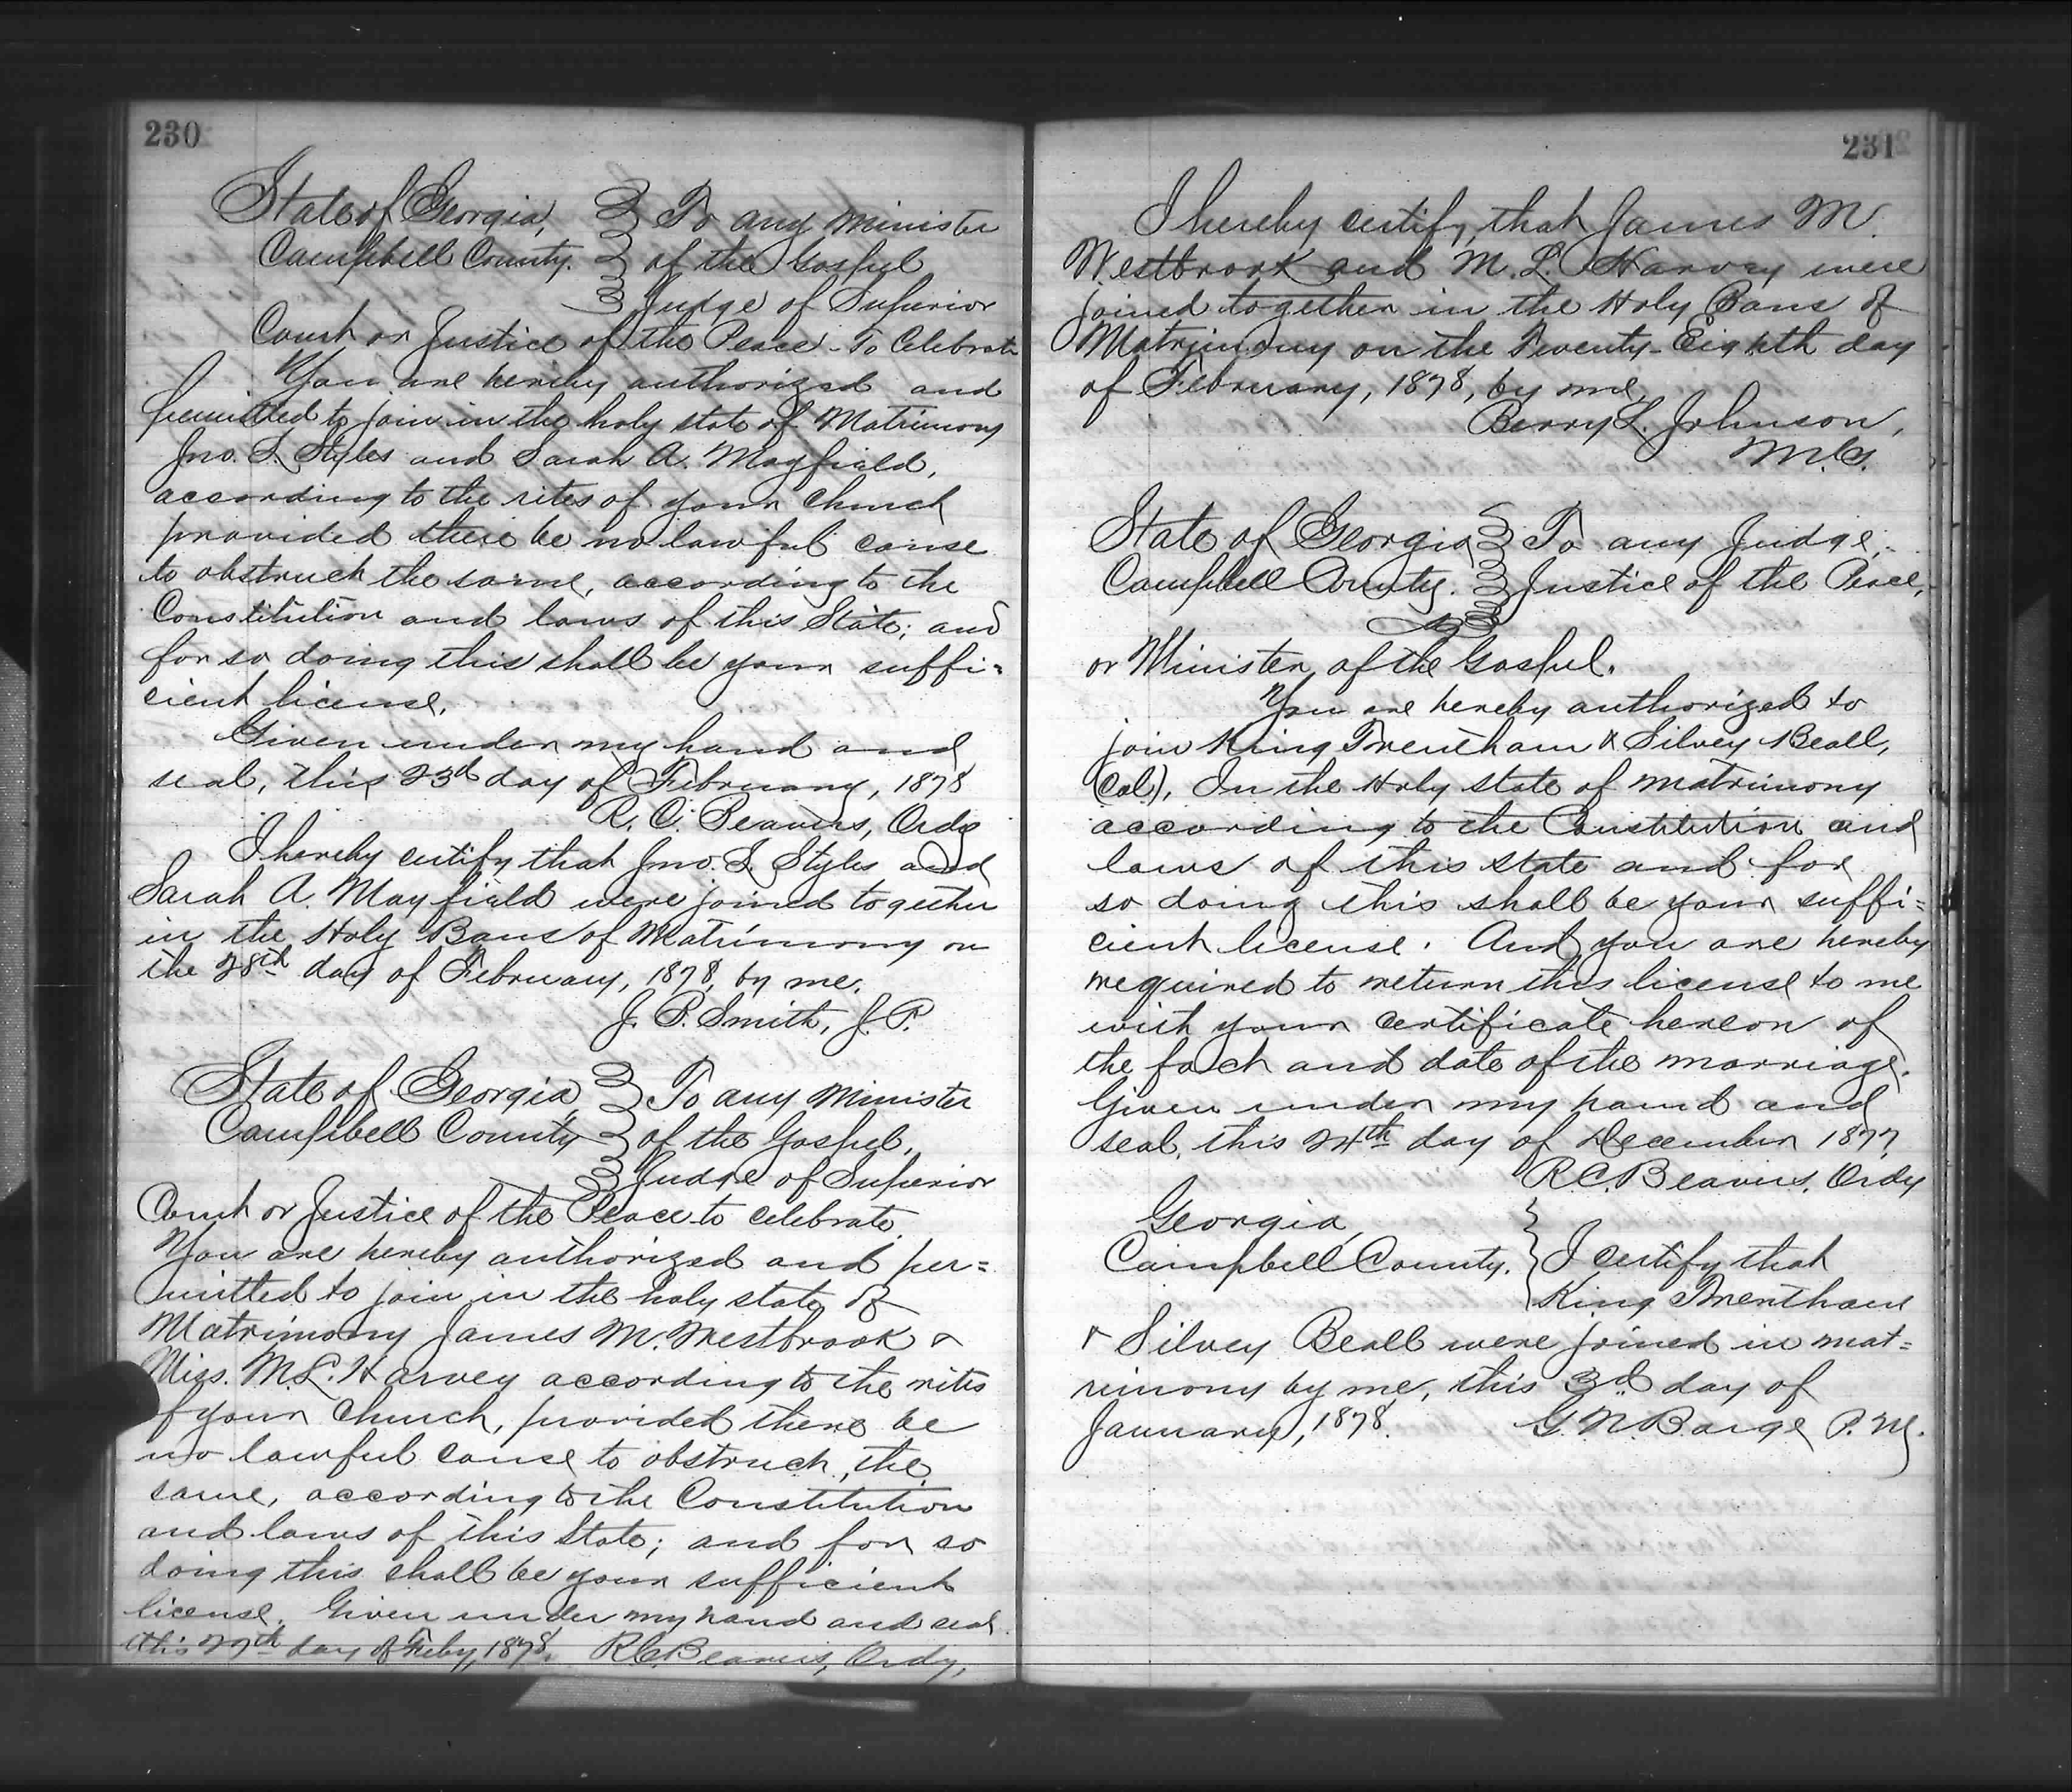 230
State of Georgia, To any Minister
Campbell County. of the Gospel
Judge of Superior
Court or Justice of the Peace - To Celebrate
You are hereby authorized and
permitted to join in the holy state of Matrimony
Jno. L. Styles and Sarah A. Mayfield,
according to the rites of your Church
provided there be no lawful cause
to obstruct the same, according to the
Constitution and laws of this State; and
for so doing this shall be your suffi=
cient license.
Given under my hand and
seal, this 23d day of February, 1878
R. C. Beavers, Ordy
I hereby certify that Jno. L. Styles and
Sarah A. Mayfield were joined together
in the Holy Bans of Matrimony on
the 28th day of February, 1878, by me.
J. P. Smith, J. P.
State of Georgia, To any Minister
Campbell County of the Gospel,
Judge of Superior
Court or Justice of the Peace to celebrate.
You are hereby authorized and per=
mitted to join in the holy state of
Matrimony James M. Westbrook &
Miss. M. L. Harvey according to the rites
of your Church, provided there be
no lawful cause to obstruct the
same, according to the Constitution
and laws of this State; and for so
doing this shall be your sufficient
license. Given under my hand and seal
this 27th day of Feby, 1878. R. C. Beavers, Ordy,
231
I hereby certify, that James M.
Westbrook and M. L. Harvey were
joined together in the Holy Bans of
Matrimony on the Twenty-Eighth day
of February, 1878, by me,
Berry L. Johnson,
M. G.
State of Georgia To any Judge,
Campbell County. Justice of the Peace,
or Minister of the Gospel.
You are hereby authorized to
join King Trentham & Silvey Beall,
(Col), In the Holy state of matrimony
according to the Constitution and
laws of this state and for
so doing this shall be your suffi=
cient license. And you are hereby
required to return this license to me
with your certificate hereon of
the fact and date of the marriage.
Given under my hand and
seal, this 24th day of December 1877.
R. C. Beavers, Ordy
Georgia,
Campbell County. I certify that
King Trentham
& Silvey Beall were joined in mat=
rimony by me, this 3d day of
January, 1878. G. N. Barge P. M.